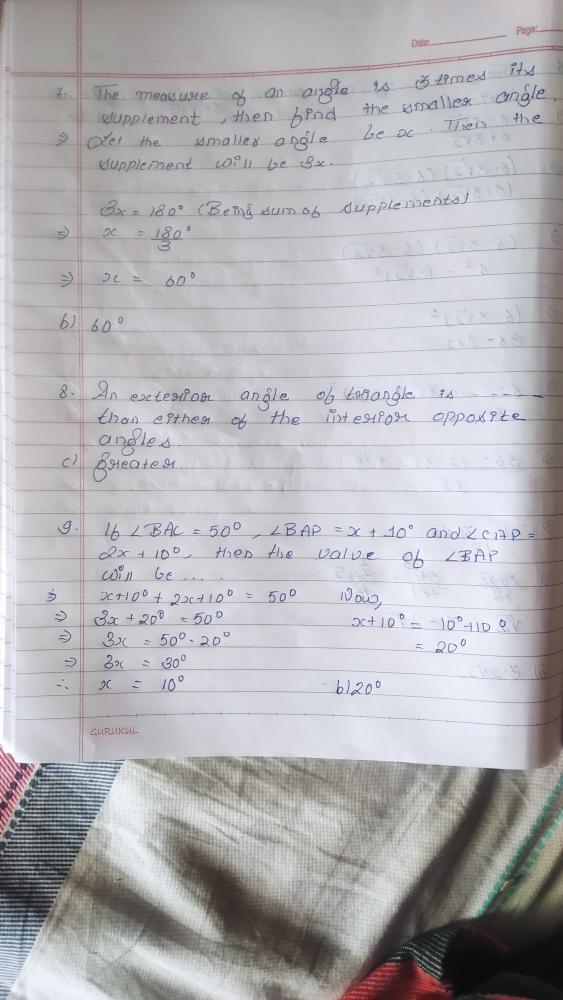 Date: Page:
7. The measure of an angle is 3 times its
supplement, then find the smaller angle.
⇒ Let the smaller angle be x. Then the
supplement will be 3x.
3x = 180° (Being sum of supplements)
⇒ x = 180°/3
⇒ x = 60°
b) 60°
8. An exterior angle of triangle is -----
than either of the interior opposite
angles.
c) greater.
9. If ∠BAC = 50°, ∠BAP = x + 10° and ∠CAP =
2x + 10°, then the value of ∠BAP
will be ....
x+10° + 2x+10° = 50° Now,
⇒ 3x + 20° = 50° x+10° = 10°+10°
⇒ 3x = 50° - 20° = 20°
⇒ 3x = 30°
∴ x = 10° b) 20°
GURUKUL